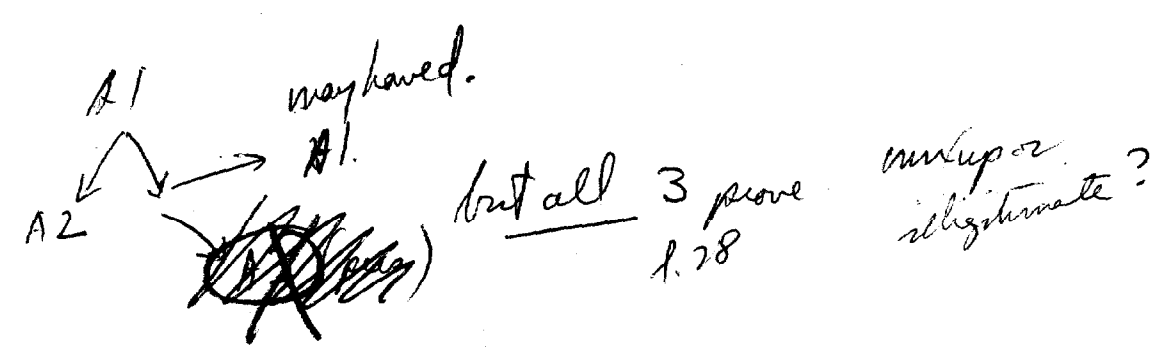 A1
may haved.
A1.
A2
but all 3 prove
1.28
mixup or
illigitimate?